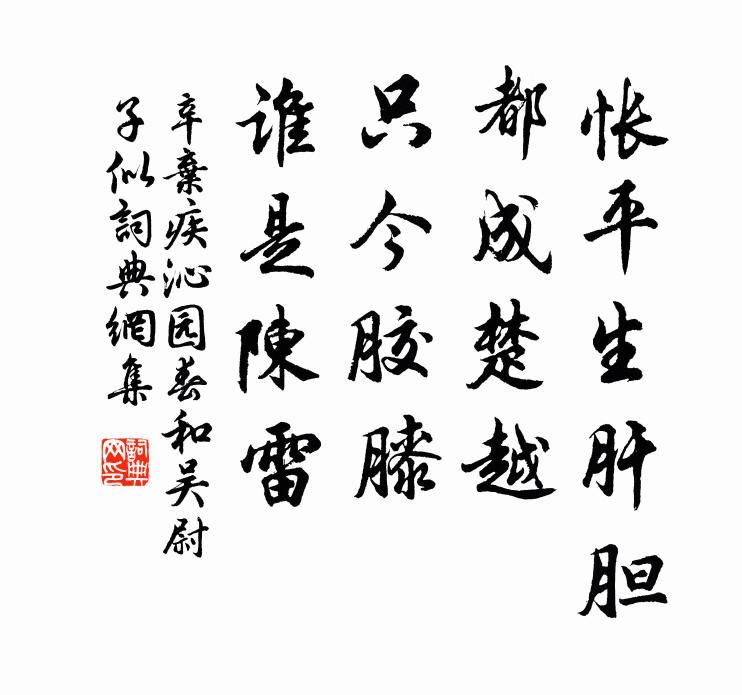 怅平生肝胆
都成楚越
只今胶膝
谁是陳雷
辛棄疾沁园春和吴尉
子似詞典網集
詞典
网印